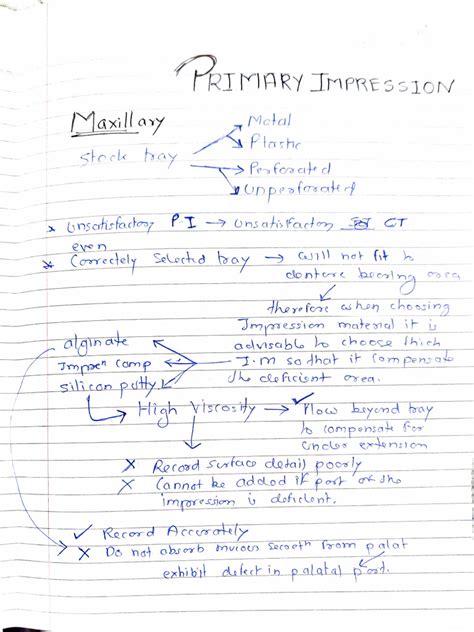 PRIMARY IMPRESSION
Maxillary
Stock tray
Metal
Plastic
Perforated
Unperforated
Unsatisfactory P.I → Unsatisfactory CT
even
Correctely selected tray → will not fit to
denture bearing area
therefore when choosing
Impression material it is
advisable to choose thich
I.m so that it compensate
the deficient area.
alginate
Impreⁿ comp
silicon putty
High Viscosity → ✓ Flow beyond tray
to compensate for
under extension
X Record surface detail poorly
X Cannot be added if part of the
impression is deficient.
✓ Record Accurately
X Do not absorb mucous secretⁿ from palat
exhibit defect in palatal port.